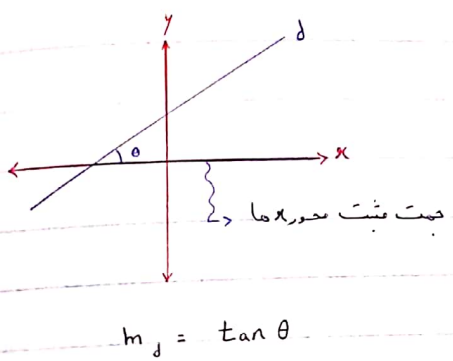 y
d
θ
x
جهت مثبت محور xها
m_d = tan θ